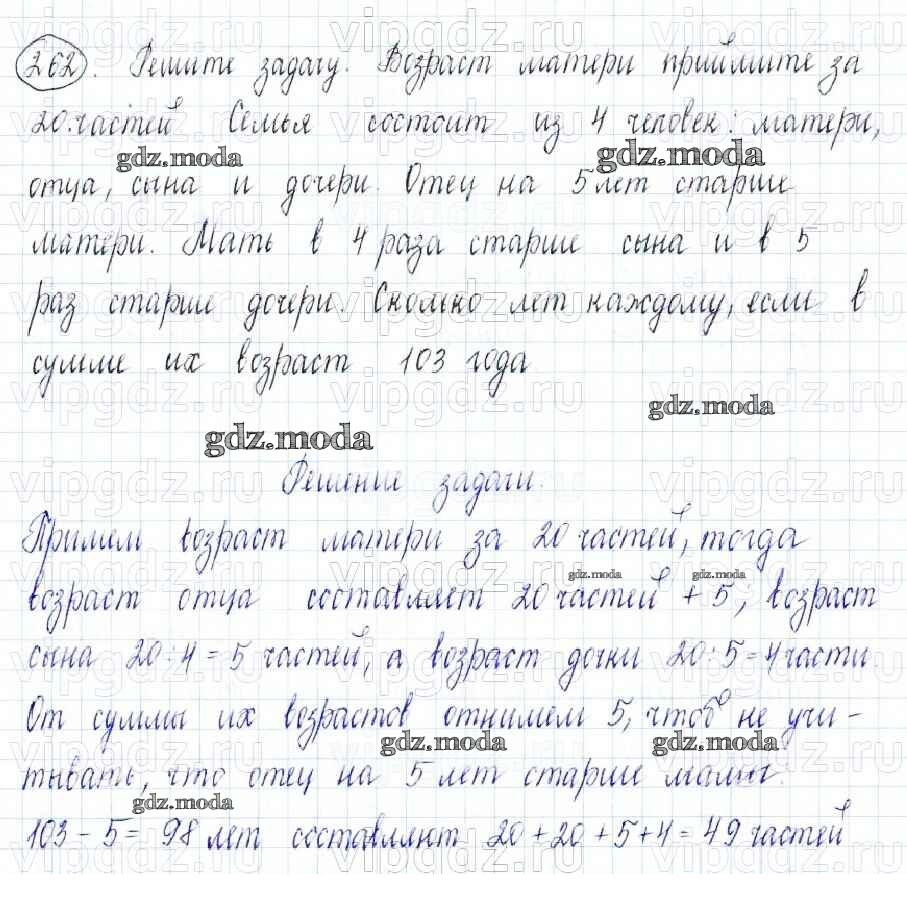 262. Решите задачу. Возраст матери приймите за
20 частей Семья состоит из 4 человек: матери,
gdz.moda gdz.moda
отца, сына и дочери. Отец на 5 лет старше
матери. Мать в 4 раза старше сына и в 5
раз старше дочери. Сколько лет каждому, если в
сумме их возраст 103 года
gdz.moda
gdz.moda
Решение задачи.
Примем возраст матери за 20 частей, тогда
gdz.moda gdz.moda
возраст отца составляет 20 частей + 5, возраст
сына 20:4=5 частей, а возраст дочки 20:5=4 части.
От суммы их возрастов отнимем 5, чтоб не учи-
gdz.moda gdz.moda
тывать, что отец на 5 лет старше мамы:
gdz.moda
103-5= 98 лет составляют 20+20+5+4=49 частей
vipgdz.ru